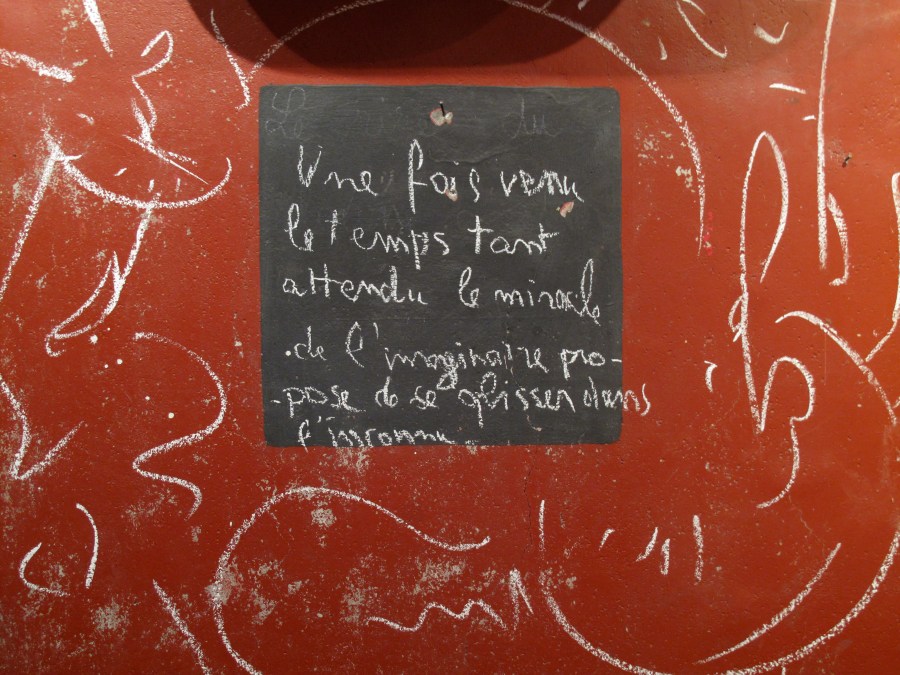 Une fois venu
le temps tant
attendu le miracle
.de l'imaginaire pro-
-pose de se glisser dans
l'inconnu